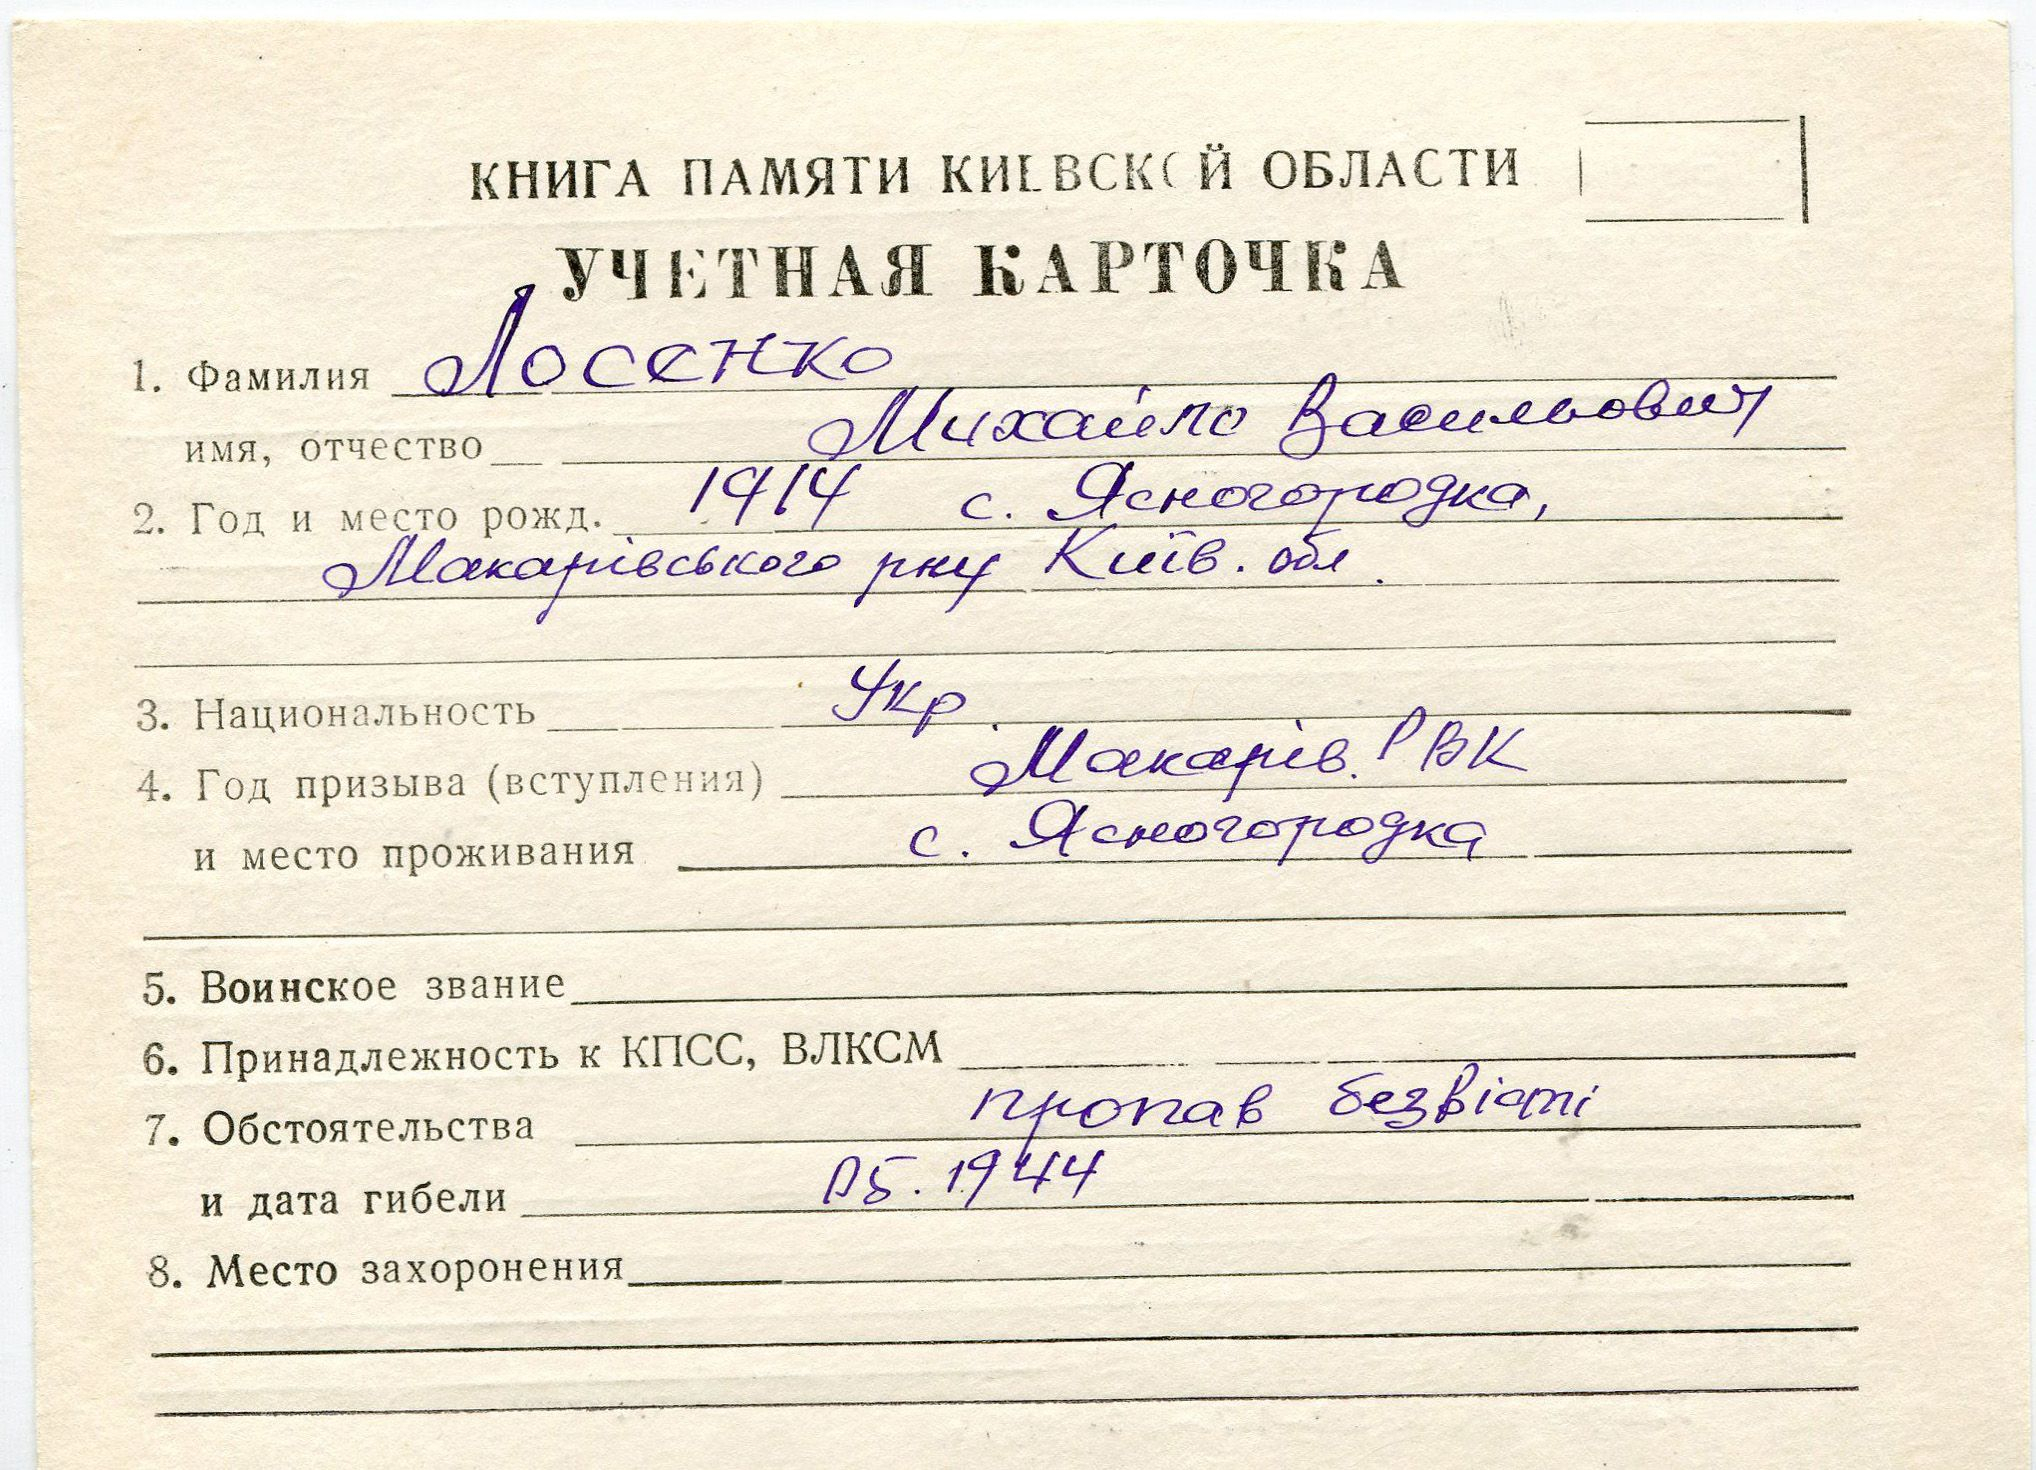 КНИГА ПАМЯТИ КИЕВСКОЙ ОБЛАСТИ
УЧЕТНАЯ КАРТОЧКА
1. Фамилия Лосенко
имя, отчество Михайло Васильович
2. Год и место рожд. 1914 с. Ясногородка,
Макарівського рну Київ. обл.
3. Национальность Укр.
4. Год призыва (вступления) Макарів. РВК
и место проживания с. Ясногородка
5. Воинское звание
6. Принадлежность к КПСС, ВЛКСМ
7. Обстоятельства пропав безвісті
и дата гибели 05.1944
8. Место захоронения